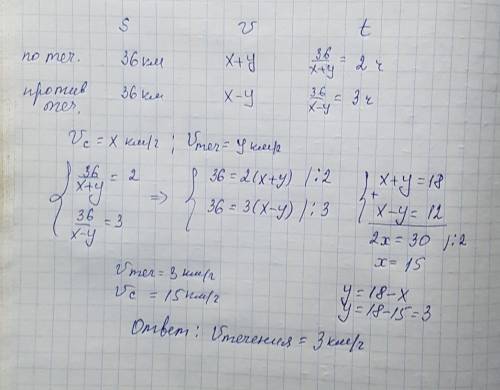 S v t
по теч. 36 км x+y 36/(x+y) = 2 ч
против теч. 36 км x-y 36/(x-y) = 3 ч
Vc = x км/г ; Vтеч = y км/г
{ 36/(x+y) = 2 => { 36 = 2(x+y) |:2 { x+y = 18
36/(x-y) = 3 36 = 3(x-y) |:3 + x-y = 12
2x = 30 |:2
x = 15
Vтеч = 3 км/г
Vc = 15 км/г
y = 18-x
y = 18-15 = 3
Ответ: Vтечения = 3 км/г